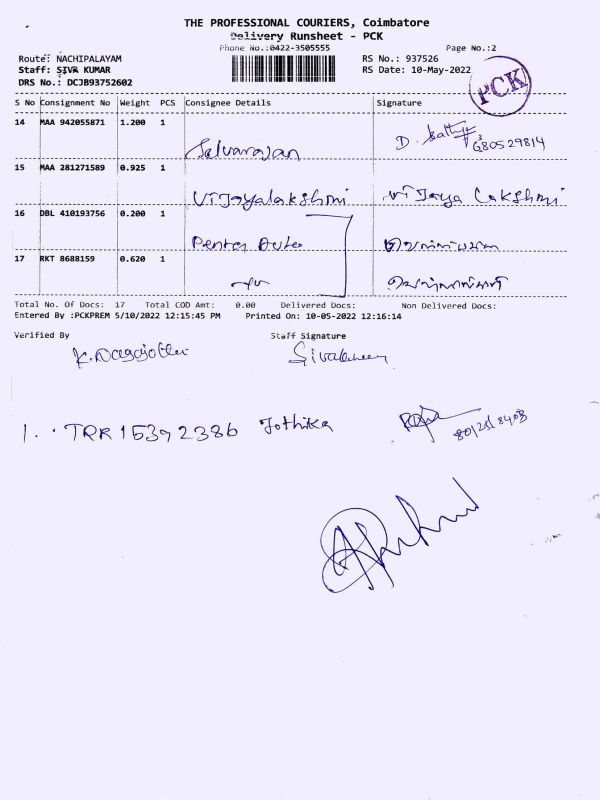 THE PROFESSIONAL COURIERS, Coimbatore
Delivery Runsheet - PCK
Phone No.:0422-3505555
Page No.:2
Route: NACHIPALAYAM
RS No.: 937526
Staff: SIVA KUMAR
RS Date: 10-May-2022
PCK
DRS No.: DCJB93752602
S No Consignment No Weight PCS Consignee Details Signature
14 MAA 942055871 1.200 1
Selvarajan
15 MAA 281271589 0.925 1
Vijayalakshmi Vijaya Lakshmi
16 DBL 410193756 0.200 1
Penta Auto
17 RKT 8688159 0.620 1
Total No. Of Docs: 17 Total COD Amt: 0.00 Delivered Docs: Non Delivered Docs:
Entered By :PCKPREM 5/10/2022 12:15:45 PM Printed On: 10-05-2022 12:16:14
Verified By Staff Signature
1. TRR 15392386 Jothika